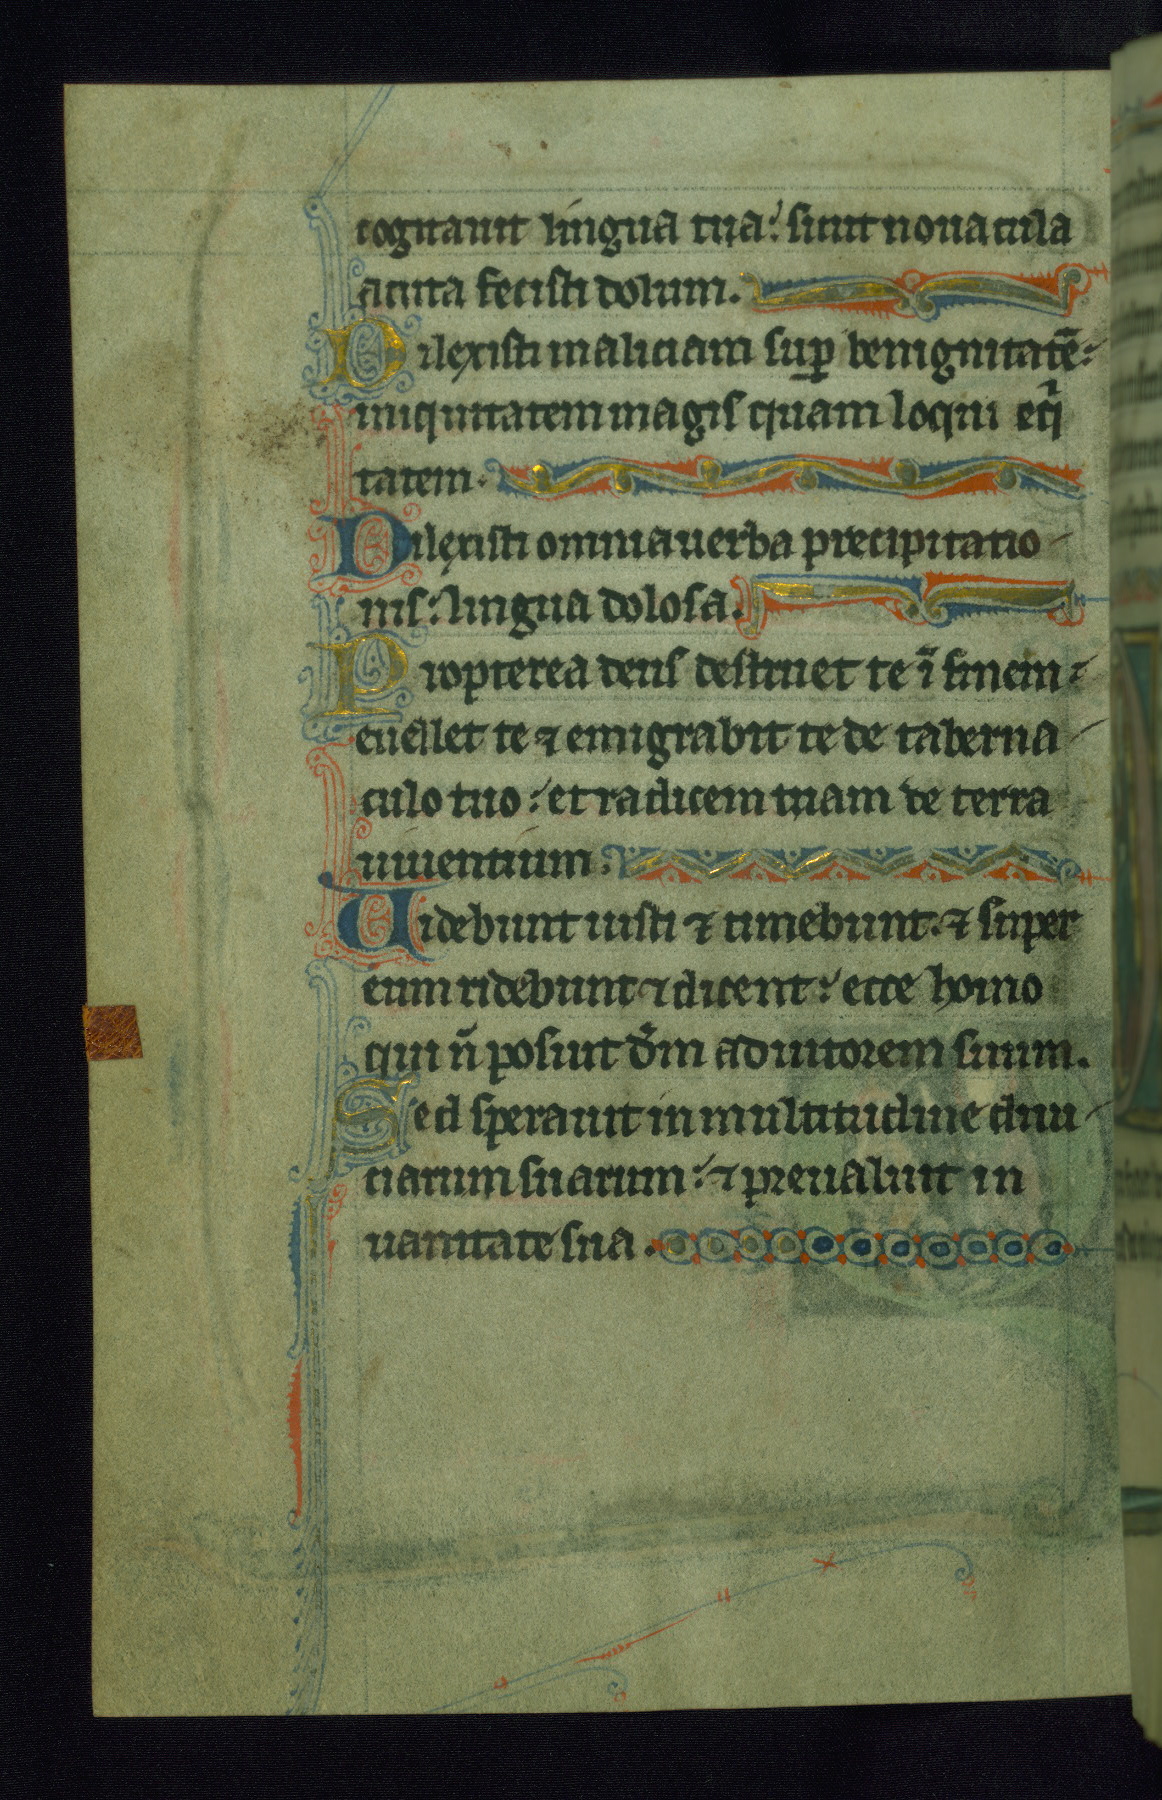 cogitauit lingua tua: sicut nouacula
acuta fecisti dolum.
Dilexisti maliciam sup̱ benignitatē:
iniquitatem magis quam loqui eqͥ
tatem.
Dilexisti omnia uerba precipitatio
nis: lingua dolosa.
Propterea deus destruet te ī finem:
euellet te ⁊ emigrabit te de taberna
culo tuo: et radicem tuam de terra
uiuentium.
Uidebunt iusti ⁊ timebunt. ⁊ super
eum ridebunt ⁊ dicent: ecce homo
qui n̄ posuit dm̄ adiutorem suum.
Sed sperauit in multitudine diui
ciarum suarum: ⁊ preualuit in
uanitate sua.